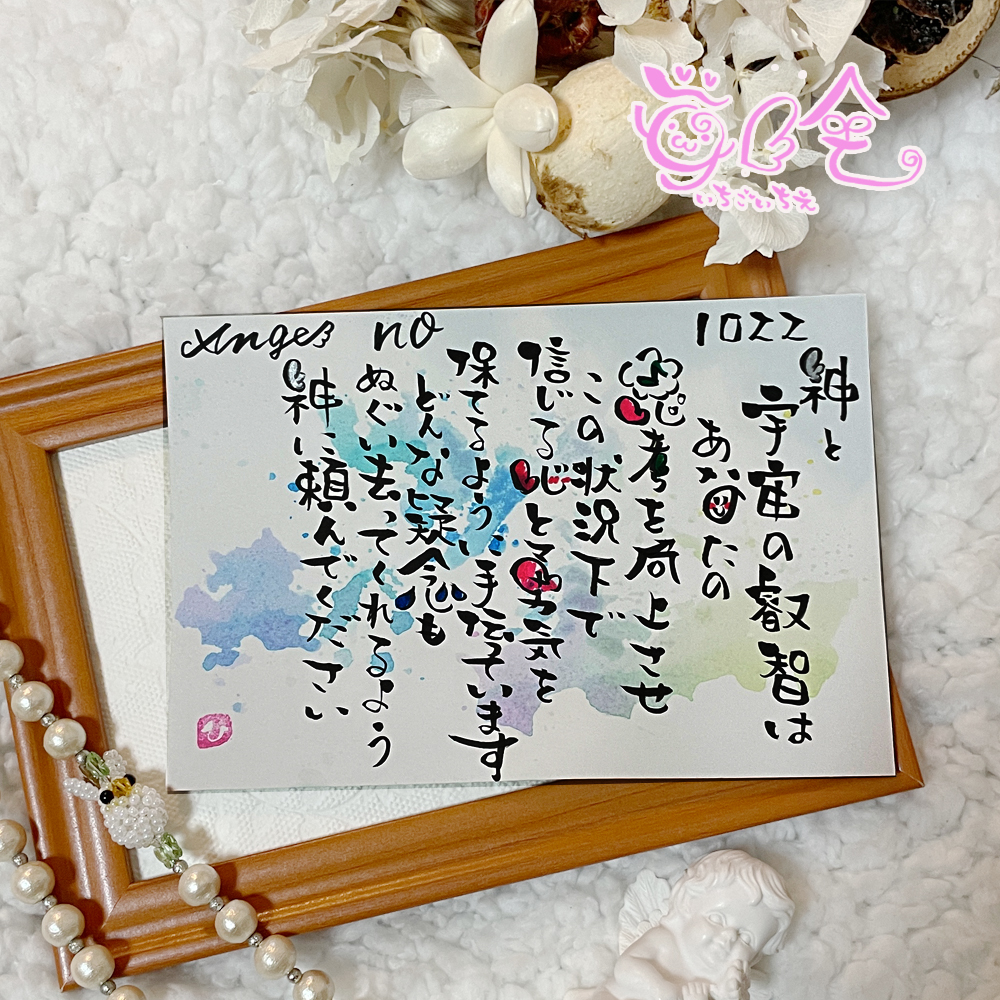 Ange no 1022
神と
宇宙の叡智は
あなたの
思考を向上させ
この状況下で
信じる心と勇気を
保てるよう、手伝っています
どんな疑念も
ぬぐい去ってくれるよう
神に頼んでください
いちごいちえ